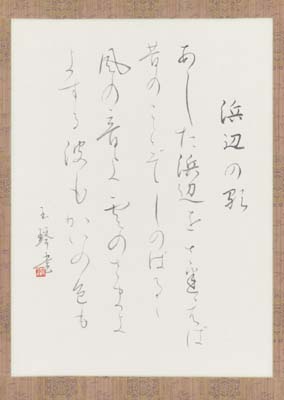 浜辺の歌
あした浜辺をさまよえば
昔のことぞしのばるる
風の音よ雲のさまよ
よする波もかいの色も
玉琴書